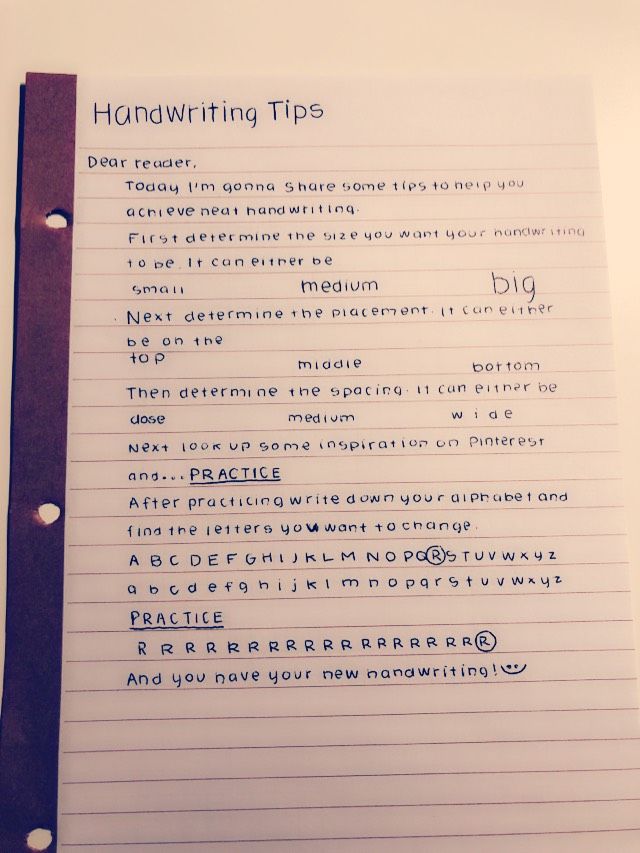 Handwriting Tips
Dear reader,
Today I'm gonna share some tips to help you
achieve neat handwriting.
First determine the size you want your handwriting
to be. It can either be
small medium big
Next determine the placement. It can either
be on the
top middle bottom
Then determine the spacing. It can either be
close medium wide
Next look up some inspiration on Pinterest
and... PRACTICE
After practicing write down your alphabet and
find the letters you want to change.
A B C D E F G H I J K L M N O P Q R S T U V W X Y Z
a b c d e f g h i j k l m n o p q r s t u v w x y z
PRACTICE
R R R R R R R R R R R R R R R R R R
And you have your new handwriting!